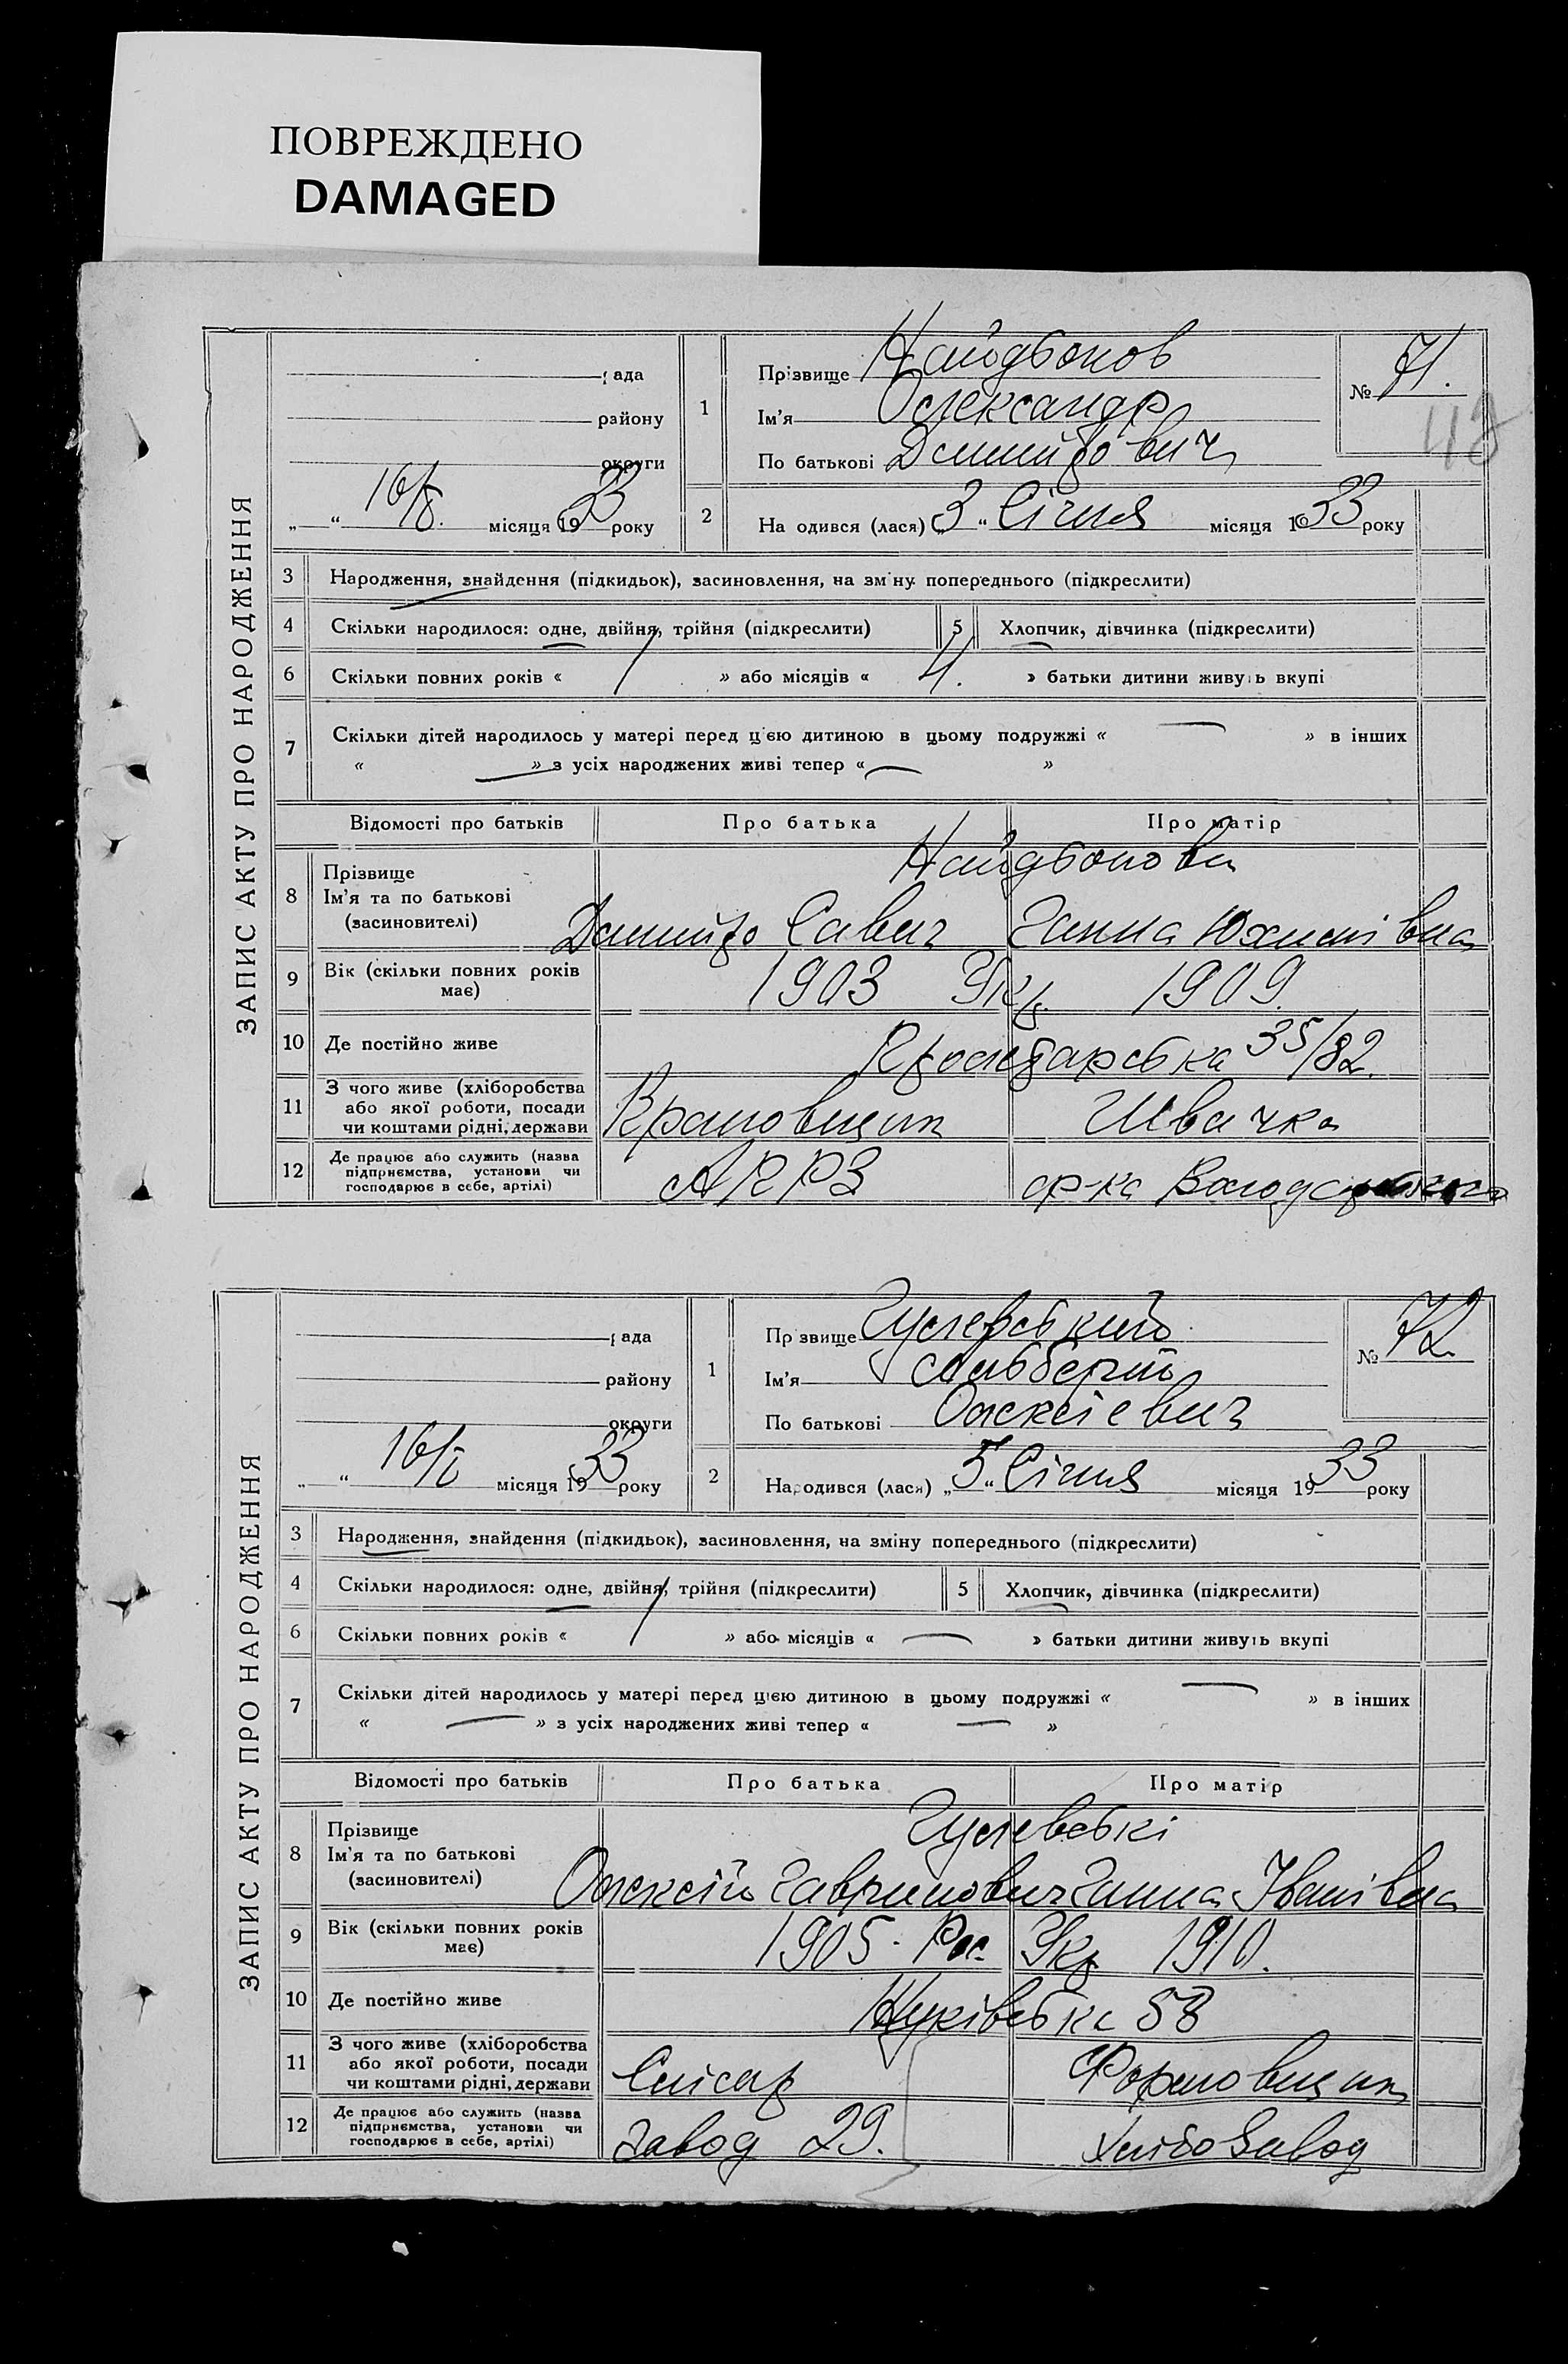 ПОВРЕЖДЕНО
DAMAGED
ЗАПИС АКТУ ПРО НАРОДЖЕННЯ
рада
району
округи
„ “ 16/I. місяця 1933 року
1 Прізвище
Ім’я Олександр
По батькові Дмитрович
№ 71.
2 На одився (лася) „3“ Січня місяця 1933 року
3 Народження, знайдення (підкидьок), засиновлення, на зміну попереднього (підкреслити)
4 Скільки народилося: одне, двійня, трійня (підкреслити) 5 Хлопчик, дівчинка (підкреслити)
6 Скільки повних років « / » або місяців « 4. » батьки дитини живуть вкупі
7 Скільки дітей народилось у матері перед цією дитиною в цьому подружжі « — » в інших
« — » з усіх народжених живі тепер « — »
Відомості про батьків Про батька Про матір
8 Прізвище
Ім’я та по батькові Дмитро Савич Ганна Юхимівна
(засиновителі)
9 Вік (скільки повних років має) 1903 Укр. 1909.
10 Де постійно живе Пролетарська 35/82.
11 З чого живе (хліборобства
або якої роботи, посади
чи коштами рідні, держави Крановщик Швачка
12 Де працює або служить (назва
підприємства, установи чи
господарює в себе, артілі) ф-ка
ЗАПИС АКТУ ПРО НАРОДЖЕННЯ
рада
району
округи
„ “ 16/I місяця 1933 року
1 Пр звище Гулевський
Ім’я Альберт
По батькові Олексієвич
№ 72
2 Народився (лася) „5“ Січня місяця 1933 року
3 Народження, знайдення (підкидьок), засиновлення, на зміну попереднього (підкреслити)
4 Скільки народилося: одне, двійня, трійня (підкреслити) 5 Хлопчик, дівчинка (підкреслити)
6 Скільки повних років « / » або місяців « — » батьки дитини живуть вкупі
7 Скільки дітей народилось у матері перед цією дитиною в цьому подружжі « — » в інших
« — » з усіх народжених живі тепер « — »
Відомості про батьків Про батька Про матір
8 Прізвище Гулевські
Ім’я та по батькові Олексій Гаврилович Ганна Іванівна
(засиновителі)
9 Вік (скільки повних років має) 1905. Рос. Укр 1910.
10 Де постійно живе Жуківська 58
11 З чого живе (хліборобства
або якої роботи, посади
чи коштами рідні, держави Слісар Формовщик
12 Де працює або служить (назва
підприємства, установи чи
господарює в себе, артілі) Завод 29. Хлібозавод